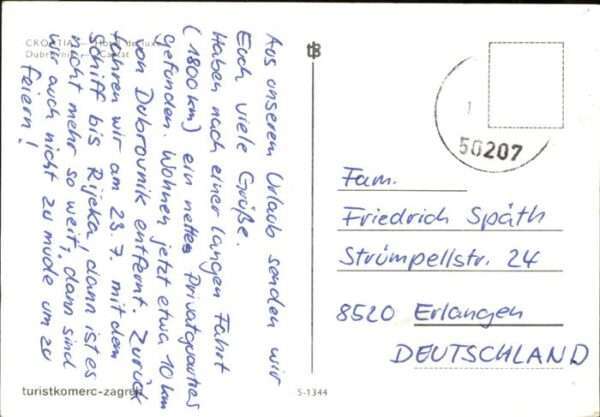 CROATIA
Dubrovnik - Cavtat
Aus unserem Urlaub senden wir
Euch viele Grüße.
Haben nach einer langen Fahrt
(1800 km) ein nettes Privatquartier
gefunden. Wohnen jetzt etwa 10 km
von Dubrovnik entfernt. Zurück
fahren wir am 23.7. mit dem
Schiff bis Rijeka, dann ist es
nicht mehr so weit, dann sind
wir auch nicht zu müde um zu
feiern!
50207
Fam.
Friedrich Späth
Strümpellstr. 24
8520 Erlangen
DEUTSCHLAND
turistkomerc-zagreb
S-1344